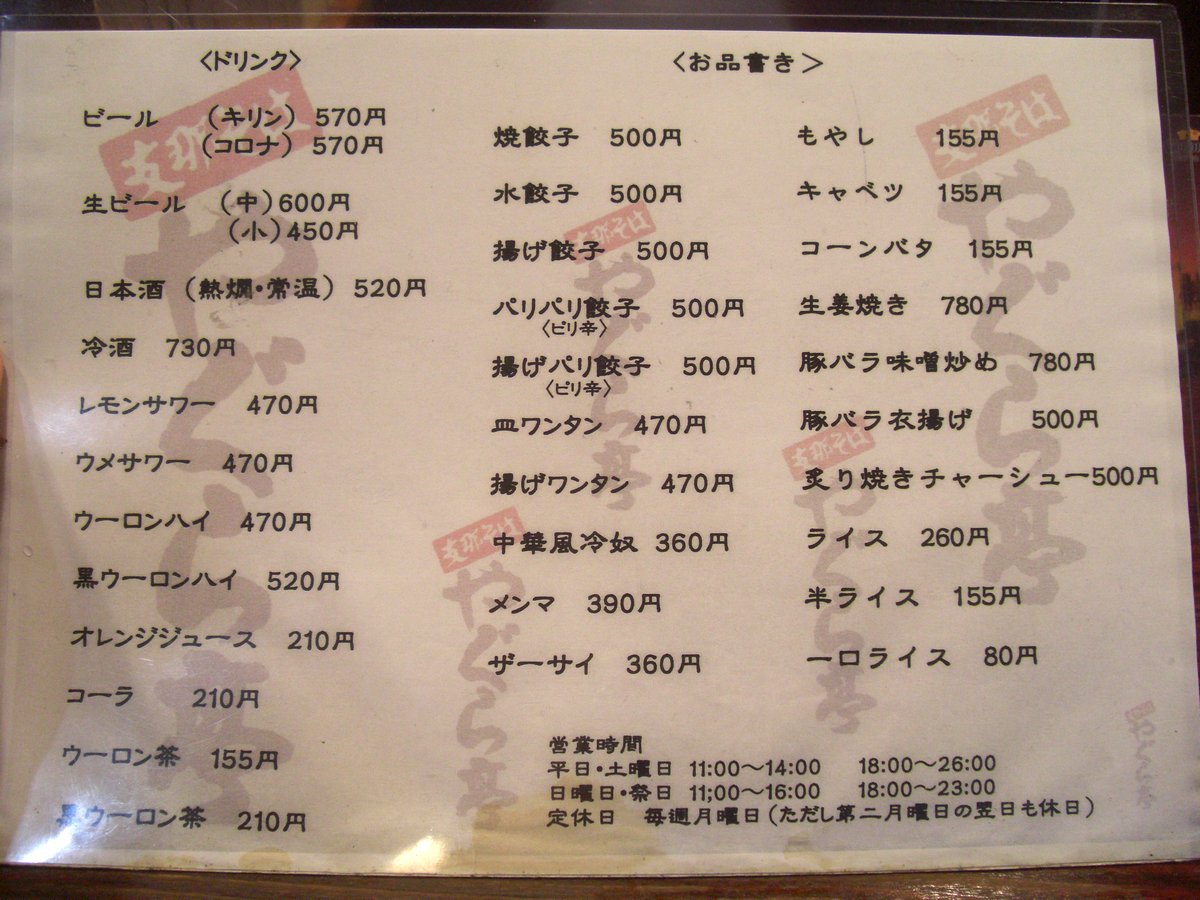 〈ドリンク〉
ビール （キリン） 570円
（コロナ） 570円
生ビール （中）600円
（小）450円
日本酒 （熱燗・常温） 520円
冷酒 730円
レモンサワー 470円
ウメサワー 470円
ウーロンハイ 470円
黒ウーロンハイ 520円
オレンジジュース 210円
コーラ 210円
ウーロン茶 155円
黒ウーロン茶 210円
〈お品書き＞
焼餃子 500円
水餃子 500円
揚げ餃子 500円
パリパリ餃子 500円
〈ピリ辛〉
揚げパリ餃子 500円
〈ピリ辛〉
皿ワンタン 470円
揚げワンタン 470円
中華風冷奴 360円
メンマ 390円
ザーサイ 360円
もやし 155円
キャベツ 155円
コーンバタ 155円
生姜焼き 780円
豚バラ味噌炒め 780円
豚バラ衣揚げ 500円
炙り焼きチャーシュー500円
ライス 260円
半ライス 155円
一口ライス 80円
営業時間
平日・土曜日 11:00～14:00 18:00～26:00
日曜日・祭日 11;00～16:00 18:00～23:00
定休日 毎週月曜日（ただし第二月曜日の翌日も休日）
支那そば
やぐら亭
支那そば
やぐら亭
支那そば
やぐら亭
支那そば
やぐら亭
支那そば
やぐら亭